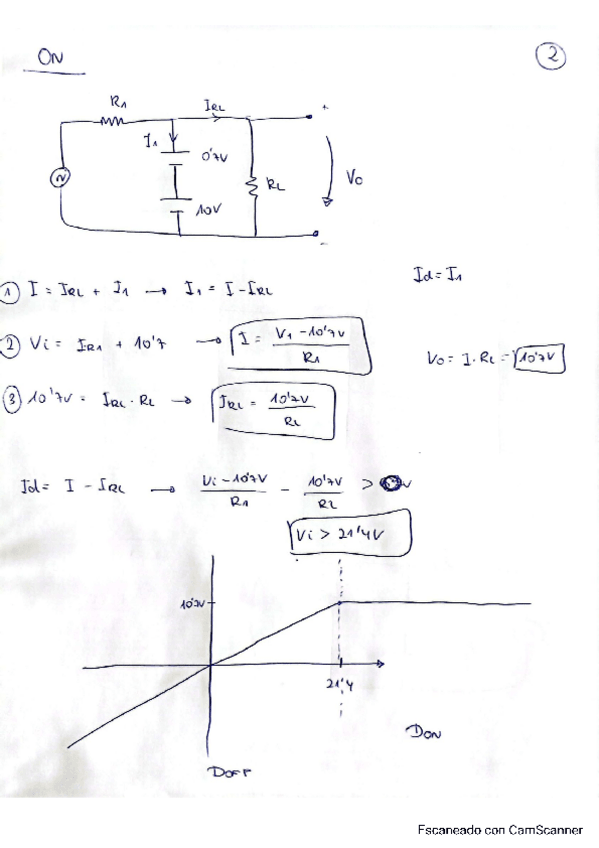 ON
2
R1
IRL
+
I1
0'7V
RL
V0
10V
-
Id = I1
1 I = IRL + I1 → I1 = I - IRL
2 Vi = IR1 + 10'7 → I = V1 - 10'7V / R1
V0 = I · RL = 10'7V
3 10'7V = IRL · RL → IRL = 10'7V / RL
Id = I - IRL → Vi - 10'7V / R1 - 10'7V / RL >
Vi > 21'4V
10'7V
21'4
DON
DOFF
Escaneado con CamScanner